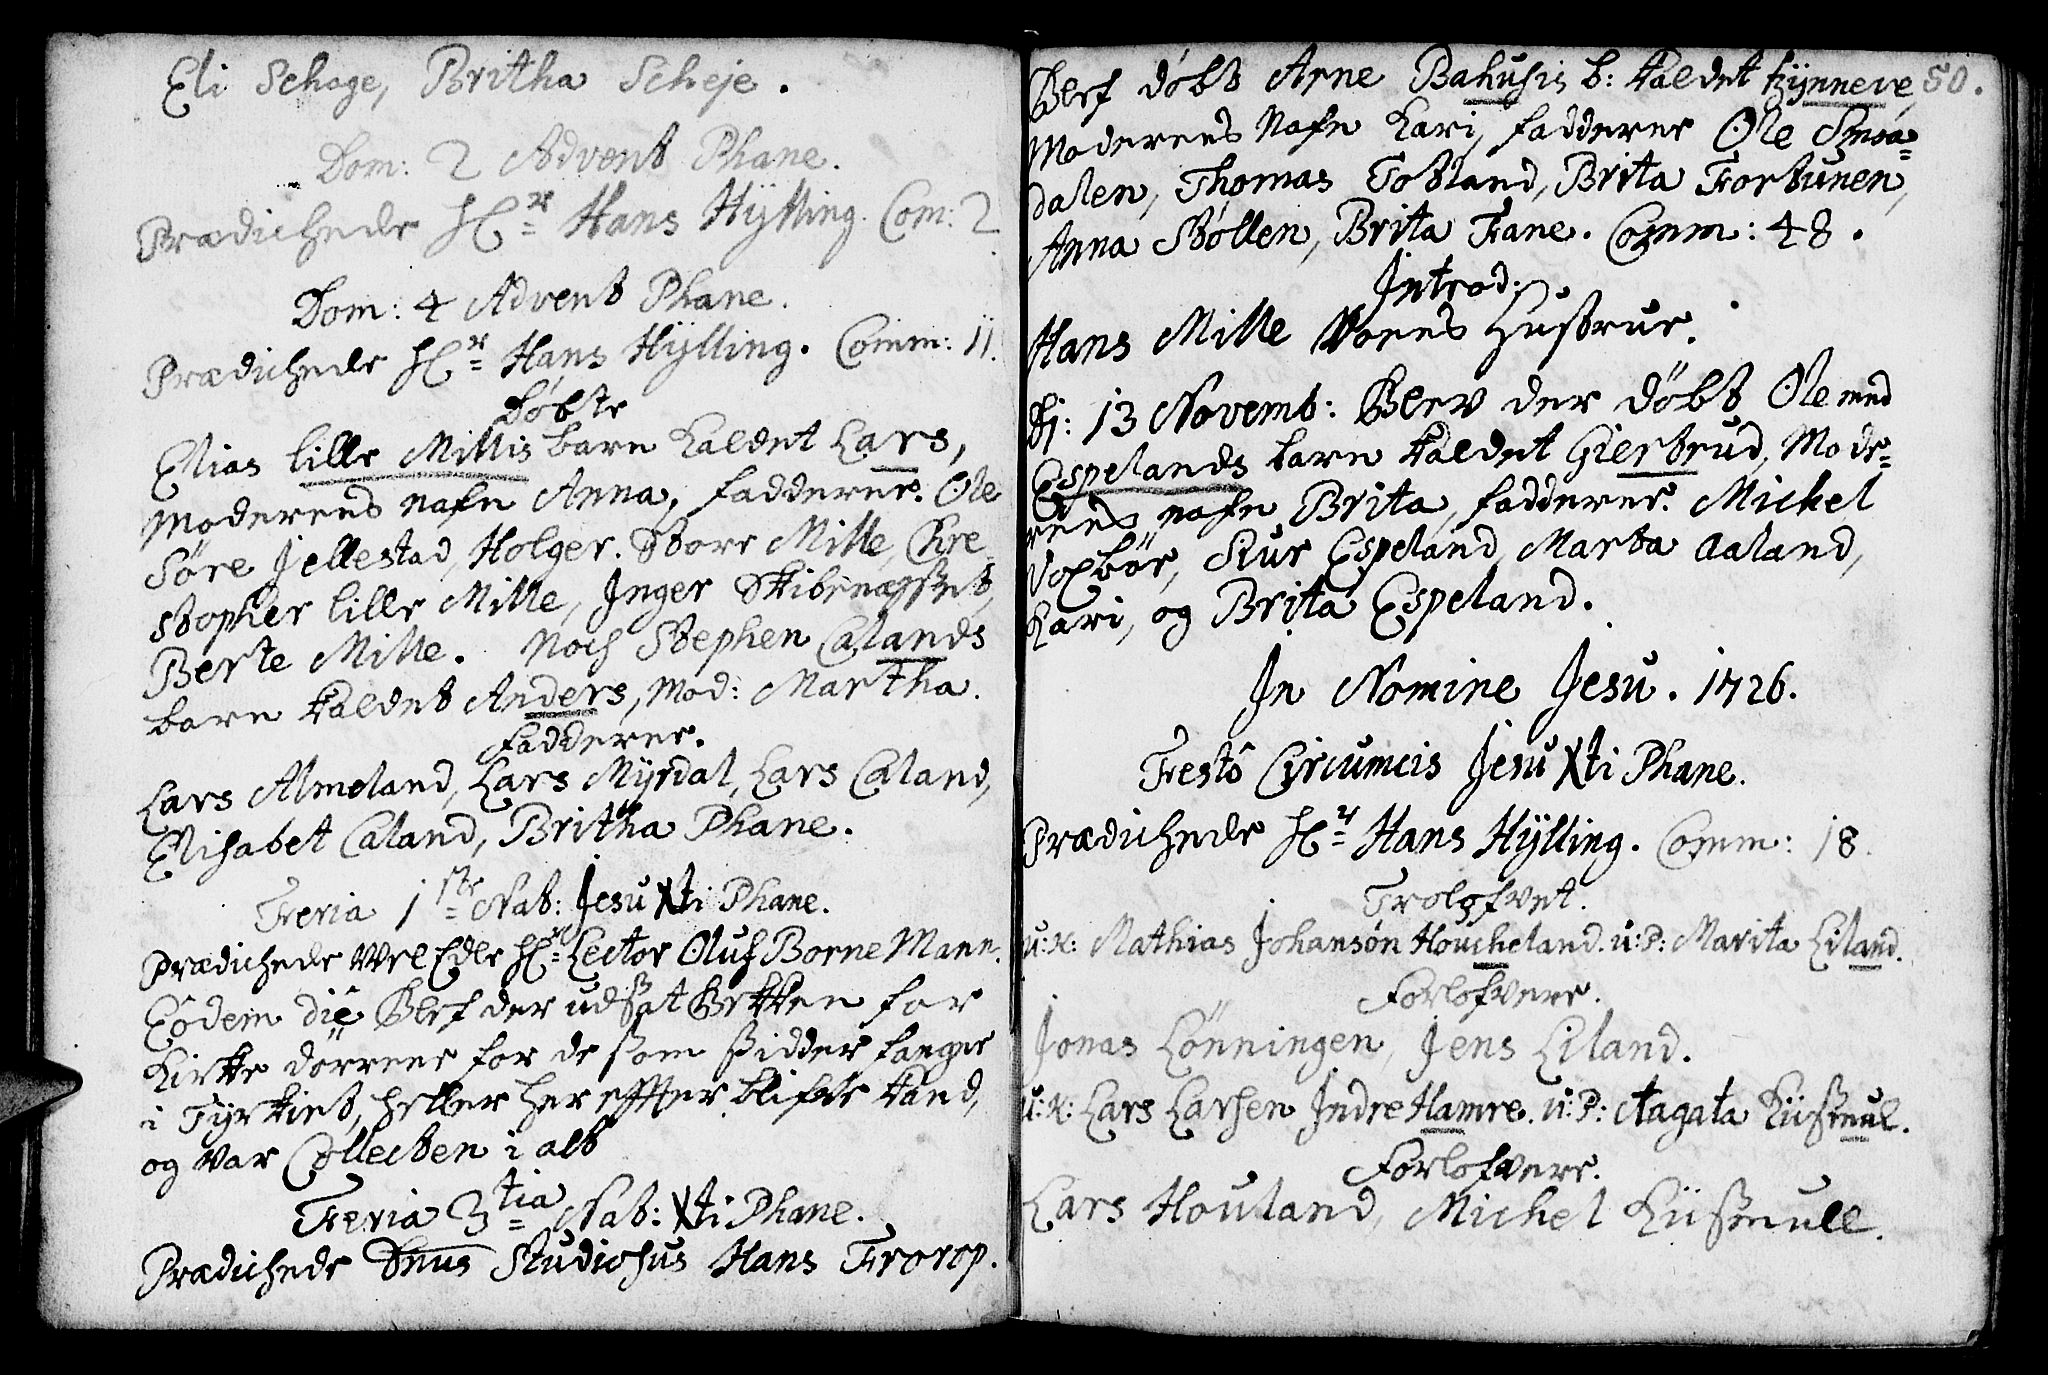 Eli Schage, Britha Scheje.
Dom: 2 Advent Phane.
Prædichede Hr Hans Hÿlling. Com: 2
Dom: 4 Advent Phane.
Prædichede Hr Hans Hÿlling. Comm: 11.
Döbte
Elias lille Millis barn kaldet Lars,
Moderens nafn Anna, fadderne. Ole
Søre Jellestad, Holger Store Mille, Chre-
stopher lille Mille, Inger Skibenæsset,
Berte Mille. Noch Stephen Calands
barn kaldet Anders, Mod: Martha.
Fadderne.
Lars Almeland, Lars Mÿrdal, Lars Caland,
Elisabet Caland, Britha Phane.
Feria 1ste Nat: Jesu Xti Phane.
Prædichede Vel Edle Hr Lector Oluf Borneman.
Eôdem diê Blef der udsat Bekken for
Kirke dörrene for de som sidder fange
i Tÿrkiet, heller her effter blifve kand,
og var Collecten i alt
Feria 3tia Nat: Xti Phane.
Prædichede Dnus Studiosus Hans Frorop.
50.
Blef döbt Arne Bahusis b: kaldet Kÿnneve
Moderens Nafn Kari, fadderne Ole Smøa-
dalen, Thomas Totland, Brita Fortunen,
Anna Støllen, Brita Fane. Comm: 48.
Introd:
Hans Mille Voens Hustrue.
dj: 13 Novemb: Blev der döbt Ole med
Espelands barn kaldet Giertrud, Mode-
rens nafn Brita, fadderne. Michel
Voxbör, Siur Espeland, Marta Aaland,
Kari, og Brita Espeland.
In Nomine Jesu. 1726.
Festô Circumcis Jesu Xti Phane.
Prædichede Hr Hans Hÿlling. Comm: 18.
Trolofvet.
u: K: Mathias Johansøn Houcheland. u: P: Marita Liland.
Forlofvere.
Jonas Lönningen, Jens Liland.
u: K: Lars Larsen Indre Hamre. u: P: Aagata Kiismul.
Forlofvere.
Lars Houland, Michel Kiismull.